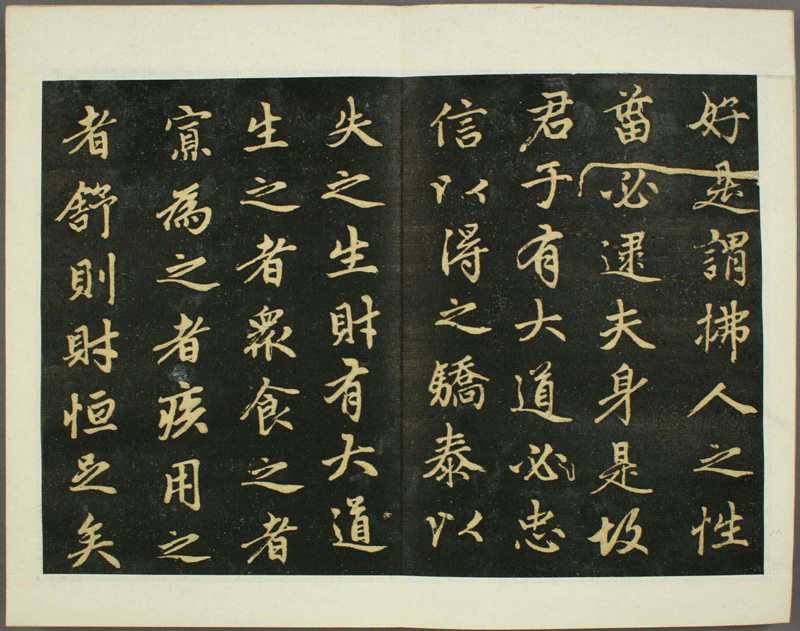 好是謂拂人之性
菑必逮夫身是故
君子有大道必忠
信以得之驕泰以
失之生財有大道
生之者衆食之者
寡為之者疾用之
者舒則財恒足矣